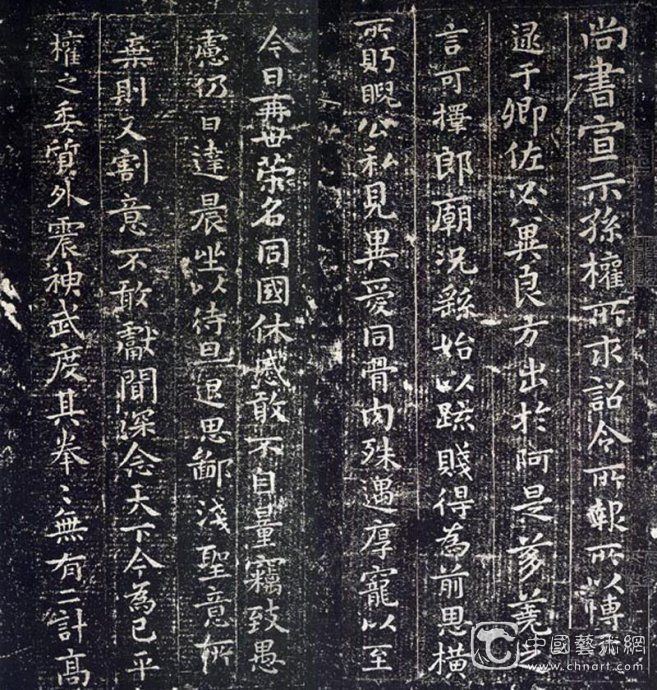 尚書宣示孫權所求詔令所報所以博
逮于卿佐必冀良方出於阿是芻蕘
言可擇郎廟況繇始以疏賤得為前恩橫
所眄睨公私見異愛同骨肉殊遇厚寵以至
今日再世榮名同國休慼敢不自量竊致愚
慮仍日達晨坐以待旦退思鄙淺聖意所
棄則又割意不敢獻聞深念天下今為已平
權之委質外震神武度其拳〻無有二計高
中國藝術網
www.chnart.com